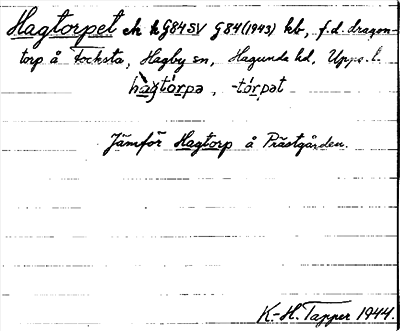 Hagtorpet ek G84SV G84(1943) kb, f.d. dragon-
torp å Focksta, Hagby sn, Hagunda hd, Upps. l.
hàgtórpə, -tórpət
Jämför Hagtorp å Prästgården.
K.-H. Tapper 1944.